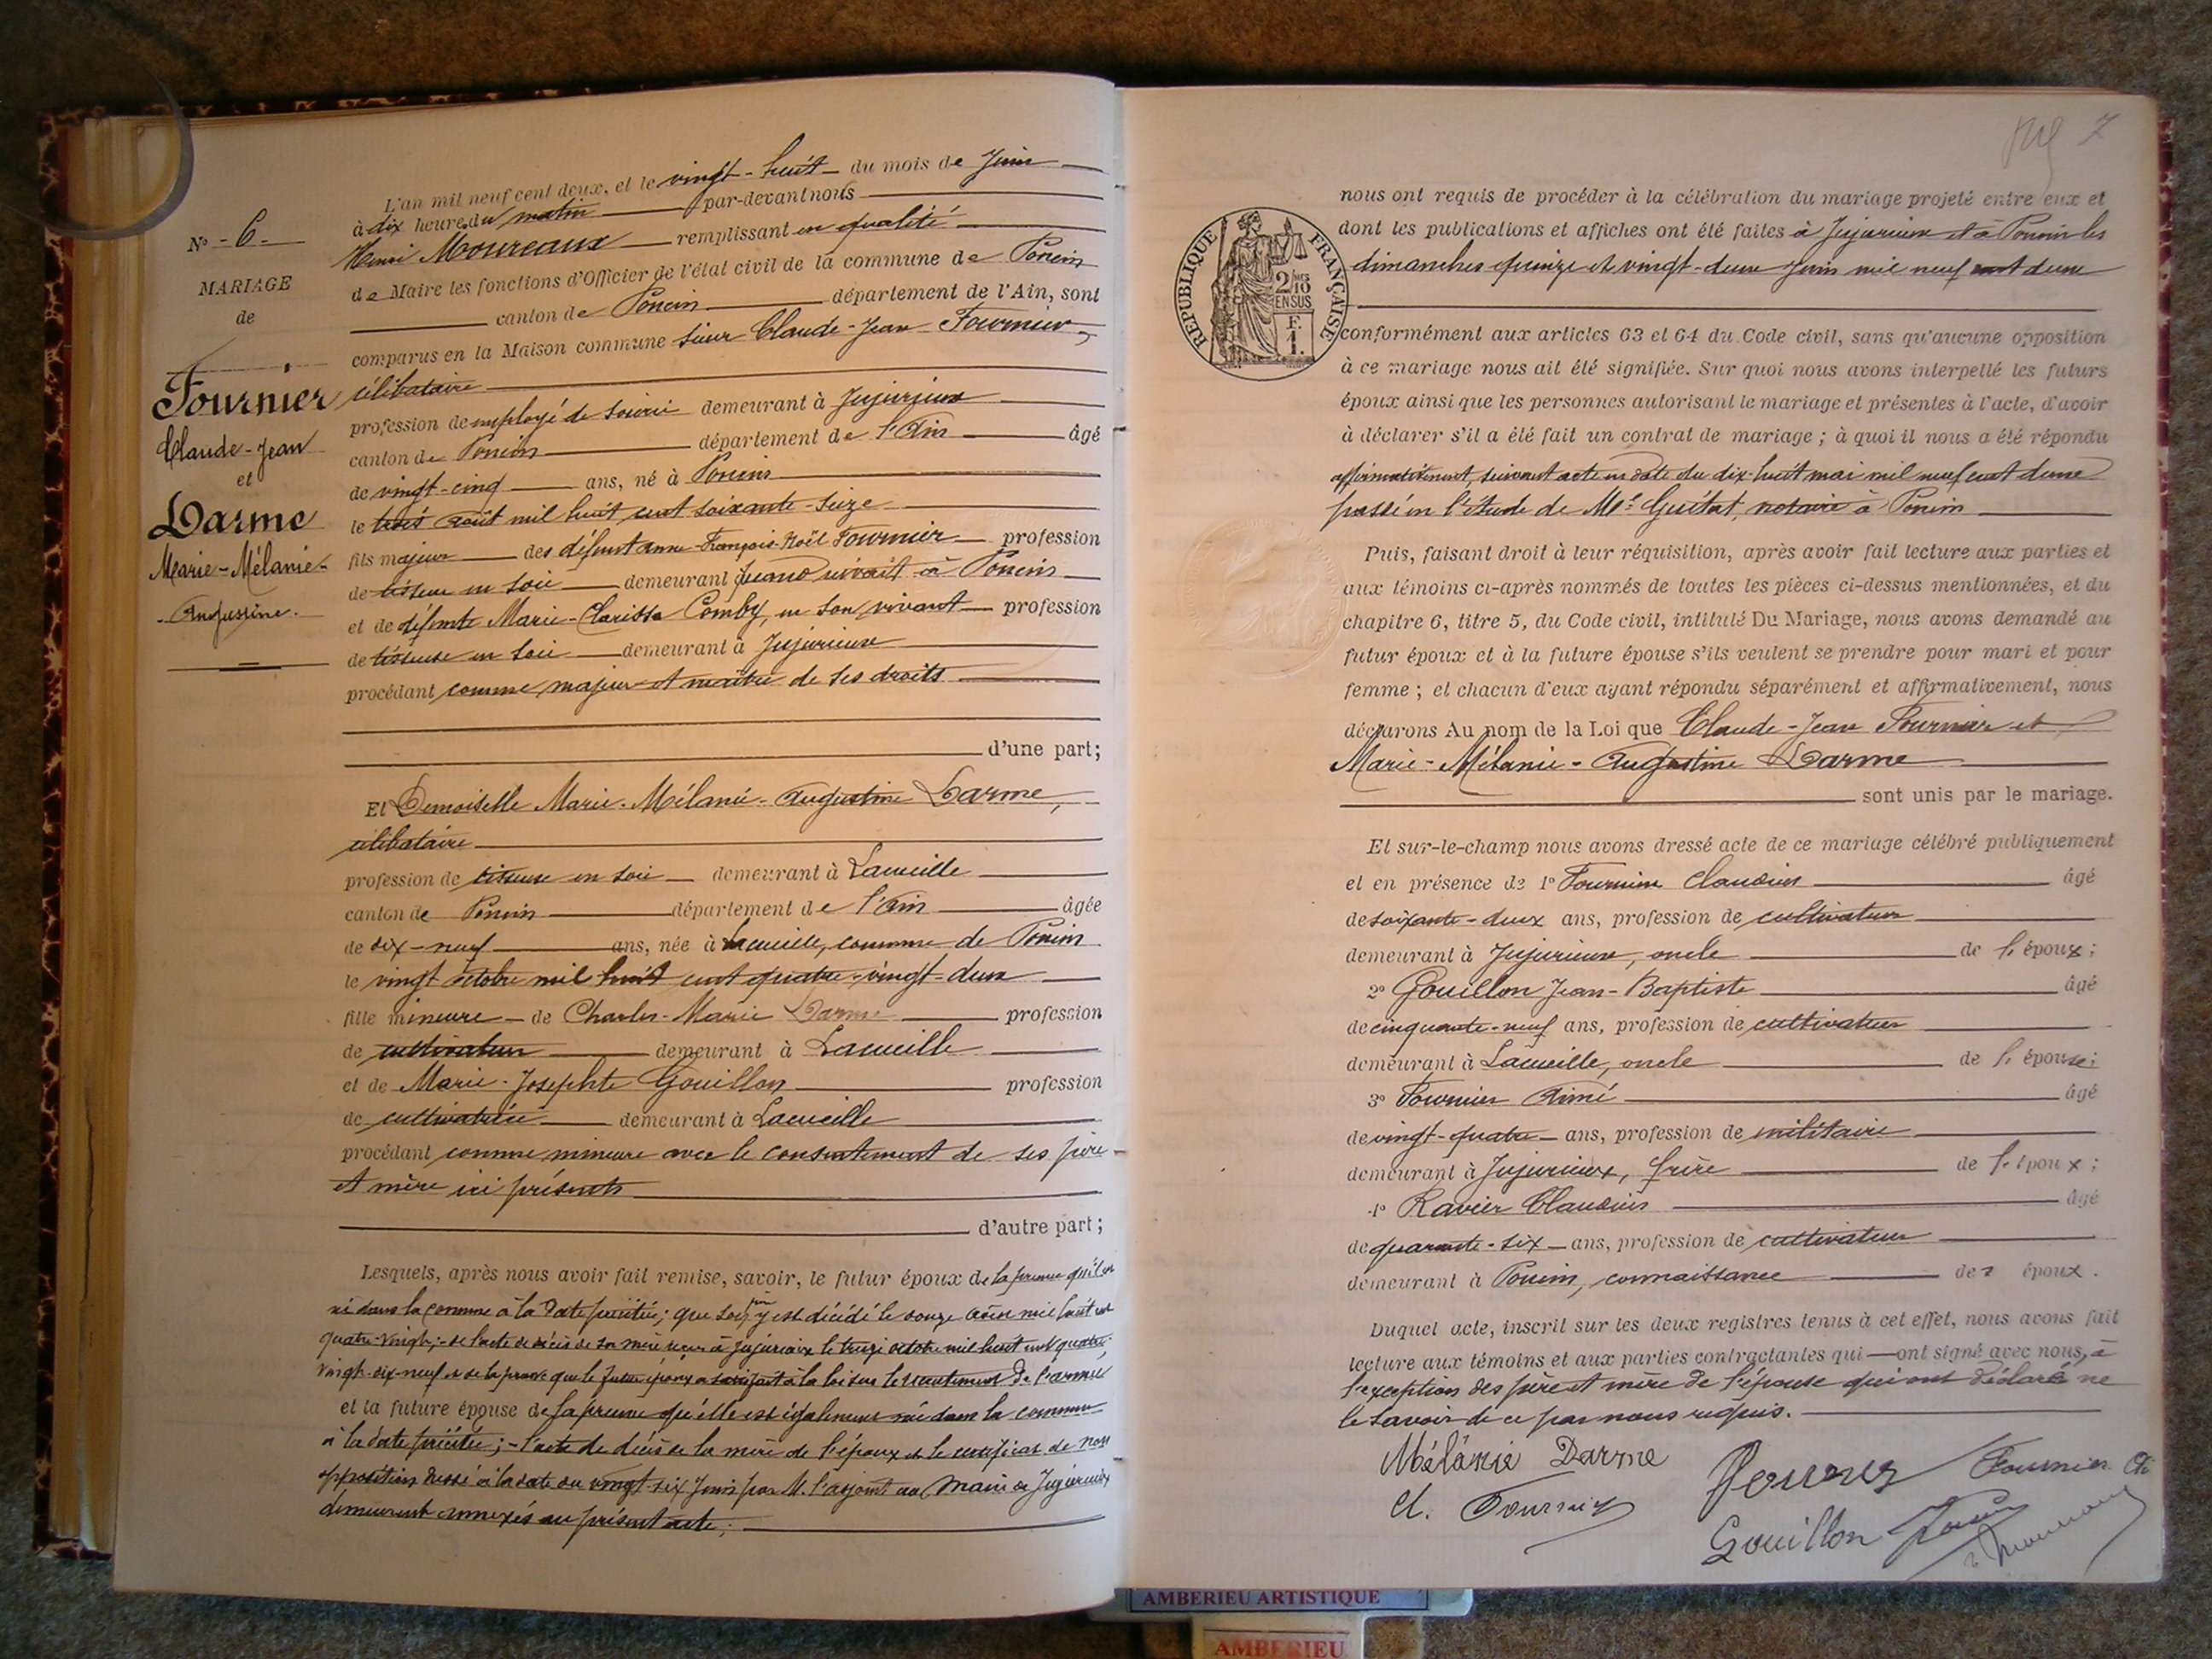 L'an mil neuf cent deux, et le vingt-huit du mois de Juin
à dix heures du matin par-devant nous
Henri Moureaux remplissant en qualité
de Maire les fonctions d'Officier de l'état civil de la commune de Poncin
canton de Poncin département de l'Ain, sont
comparus en la Maison commune sieur Claude-Jean Fournier,
célibataire
profession de employé de soierie demeurant à Jujurieux
canton de Poncin département de l'Ain âgé
de vingt-cinq ans, né à Poncin
le trois août mil huit cent soixante-seize
fils majeur des défunt François-Noël Fournier profession
de tisseur en soie demeurant quand vivait à Poncin
et de défunte Marie-Clarisse Comby, en son vivant profession
de tisseuse en soie demeurant à Jujurieux
procédant comme majeur et maître de ses droits
d'une part;
N° - 6 -
MARIAGE
de
Fournier
Claude-Jean
et
Darme
Marie-Mélanie-
Augustine.
Et Demoiselle Marie-Mélanie-Augustine Darme,
célibataire
profession de tisseuse en soie demeurant à Lacueille
canton de Poncin département de l'Ain âgée
de dix-neuf ans, née à Lacueille, commune de Poncin
le vingt octobre mil huit cent quatre-vingt-deux
fille mineure de Charles-Marie Darme profession
de cultivateur demeurant à Lacueille
et de Marie-Josephte Gouillon profession
de cultivatrice demeurant à Lacueille
procédant comme mineure avec le consentement de ses père
et mère ici présents
d'autre part;
Lesquels, après nous avoir fait remise, savoir, le futur époux de la preuve qu'il est
né dans la commune à la date précitée; que son père y est décédé le douze août mil huit cent
quatre-vingt; de l'acte de décès de sa mère à Jujurieux le treize octobre mil huit cent quatre-
vingt-dix-neuf et de la preuve que le futur époux a satisfait à la loi sur le recrutement de l'armée
et la future épouse de la preuve qu'elle est également née dans la commune
à la date précitée; - l'acte de décès de la mère de l'époux et le certificat de non
opposition dressé à la date du vingt-six Juin par M. l'adjoint au Maire de Jujurieux
demeurent annexés au présent acte;
7
RÉPUBLIQUE FRANÇAISE
2/10
EN SUS
F.
1.
nous ont requis de procéder à la célébration du mariage projeté entre eux et
dont les publications et affiches ont été faites à Jujurieux et à Poncin les
dimanches quinze et vingt-deux juin mil neuf cent deux
conformément aux articles 63 et 64 du Code civil, sans qu'aucune opposition
à ce mariage nous ait été signifiée. Sur quoi nous avons interpellé les futurs
époux ainsi que les personnes autorisant le mariage et présentes à l'acte, d'avoir
à déclarer s'il a été fait un contrat de mariage; à quoi il nous a été répondu
affirmativement, suivant acte en date du dix-huit mai mil neuf cent deux
passé en l'étude de Me Guétat, notaire à Poncin
Puis, faisant droit à leur réquisition, après avoir fait lecture aux parties et
aux témoins ci-après nommés de toutes les pièces ci-dessus mentionnées, et du
chapitre 6, titre 5, du Code civil, intitulé Du Mariage, nous avons demandé au
futur époux et à la future épouse s'ils veulent se prendre pour mari et pour
femme; et chacun d'eux ayant répondu séparément et affirmativement, nous
déclarons Au nom de la Loi que Claude-Jean Fournier et
Marie-Mélanie-Augustine Darme
sont unis par le mariage.
Et sur-le-champ nous avons dressé acte de ce mariage célébré publiquement
et en présence de 1° Fournier Claudius âgé
de soixante-deux ans, profession de cultivateur
demeurant à Jujurieux, oncle de l'époux;
2° Gouillon Jean-Baptiste âgé
de cinquante-neuf ans, profession de cultivateur
demeurant à Lacueille, oncle de l'épouse;
3° Fournier Aimé âgé
de vingt-quatre ans, profession de militaire
demeurant à Jujurieux, frère de l'époux;
4° Ravier Claudius âgé
de quarante-six ans, profession de cultivateur
demeurant à Poncin, connaissance des époux.
Duquel acte, inscrit sur les deux registres tenus à cet effet, nous avons fait
lecture aux témoins et aux parties contractantes qui ont signé avec nous, à
l'exception des père et mère de l'épouse qui ont déclaré ne
le savoir de ce par nous requis.
Mélanie Darme
Fournier
Cl. Fournier
Gouillon
AMBERIEU ARTISTIQUE
AMBERIEU